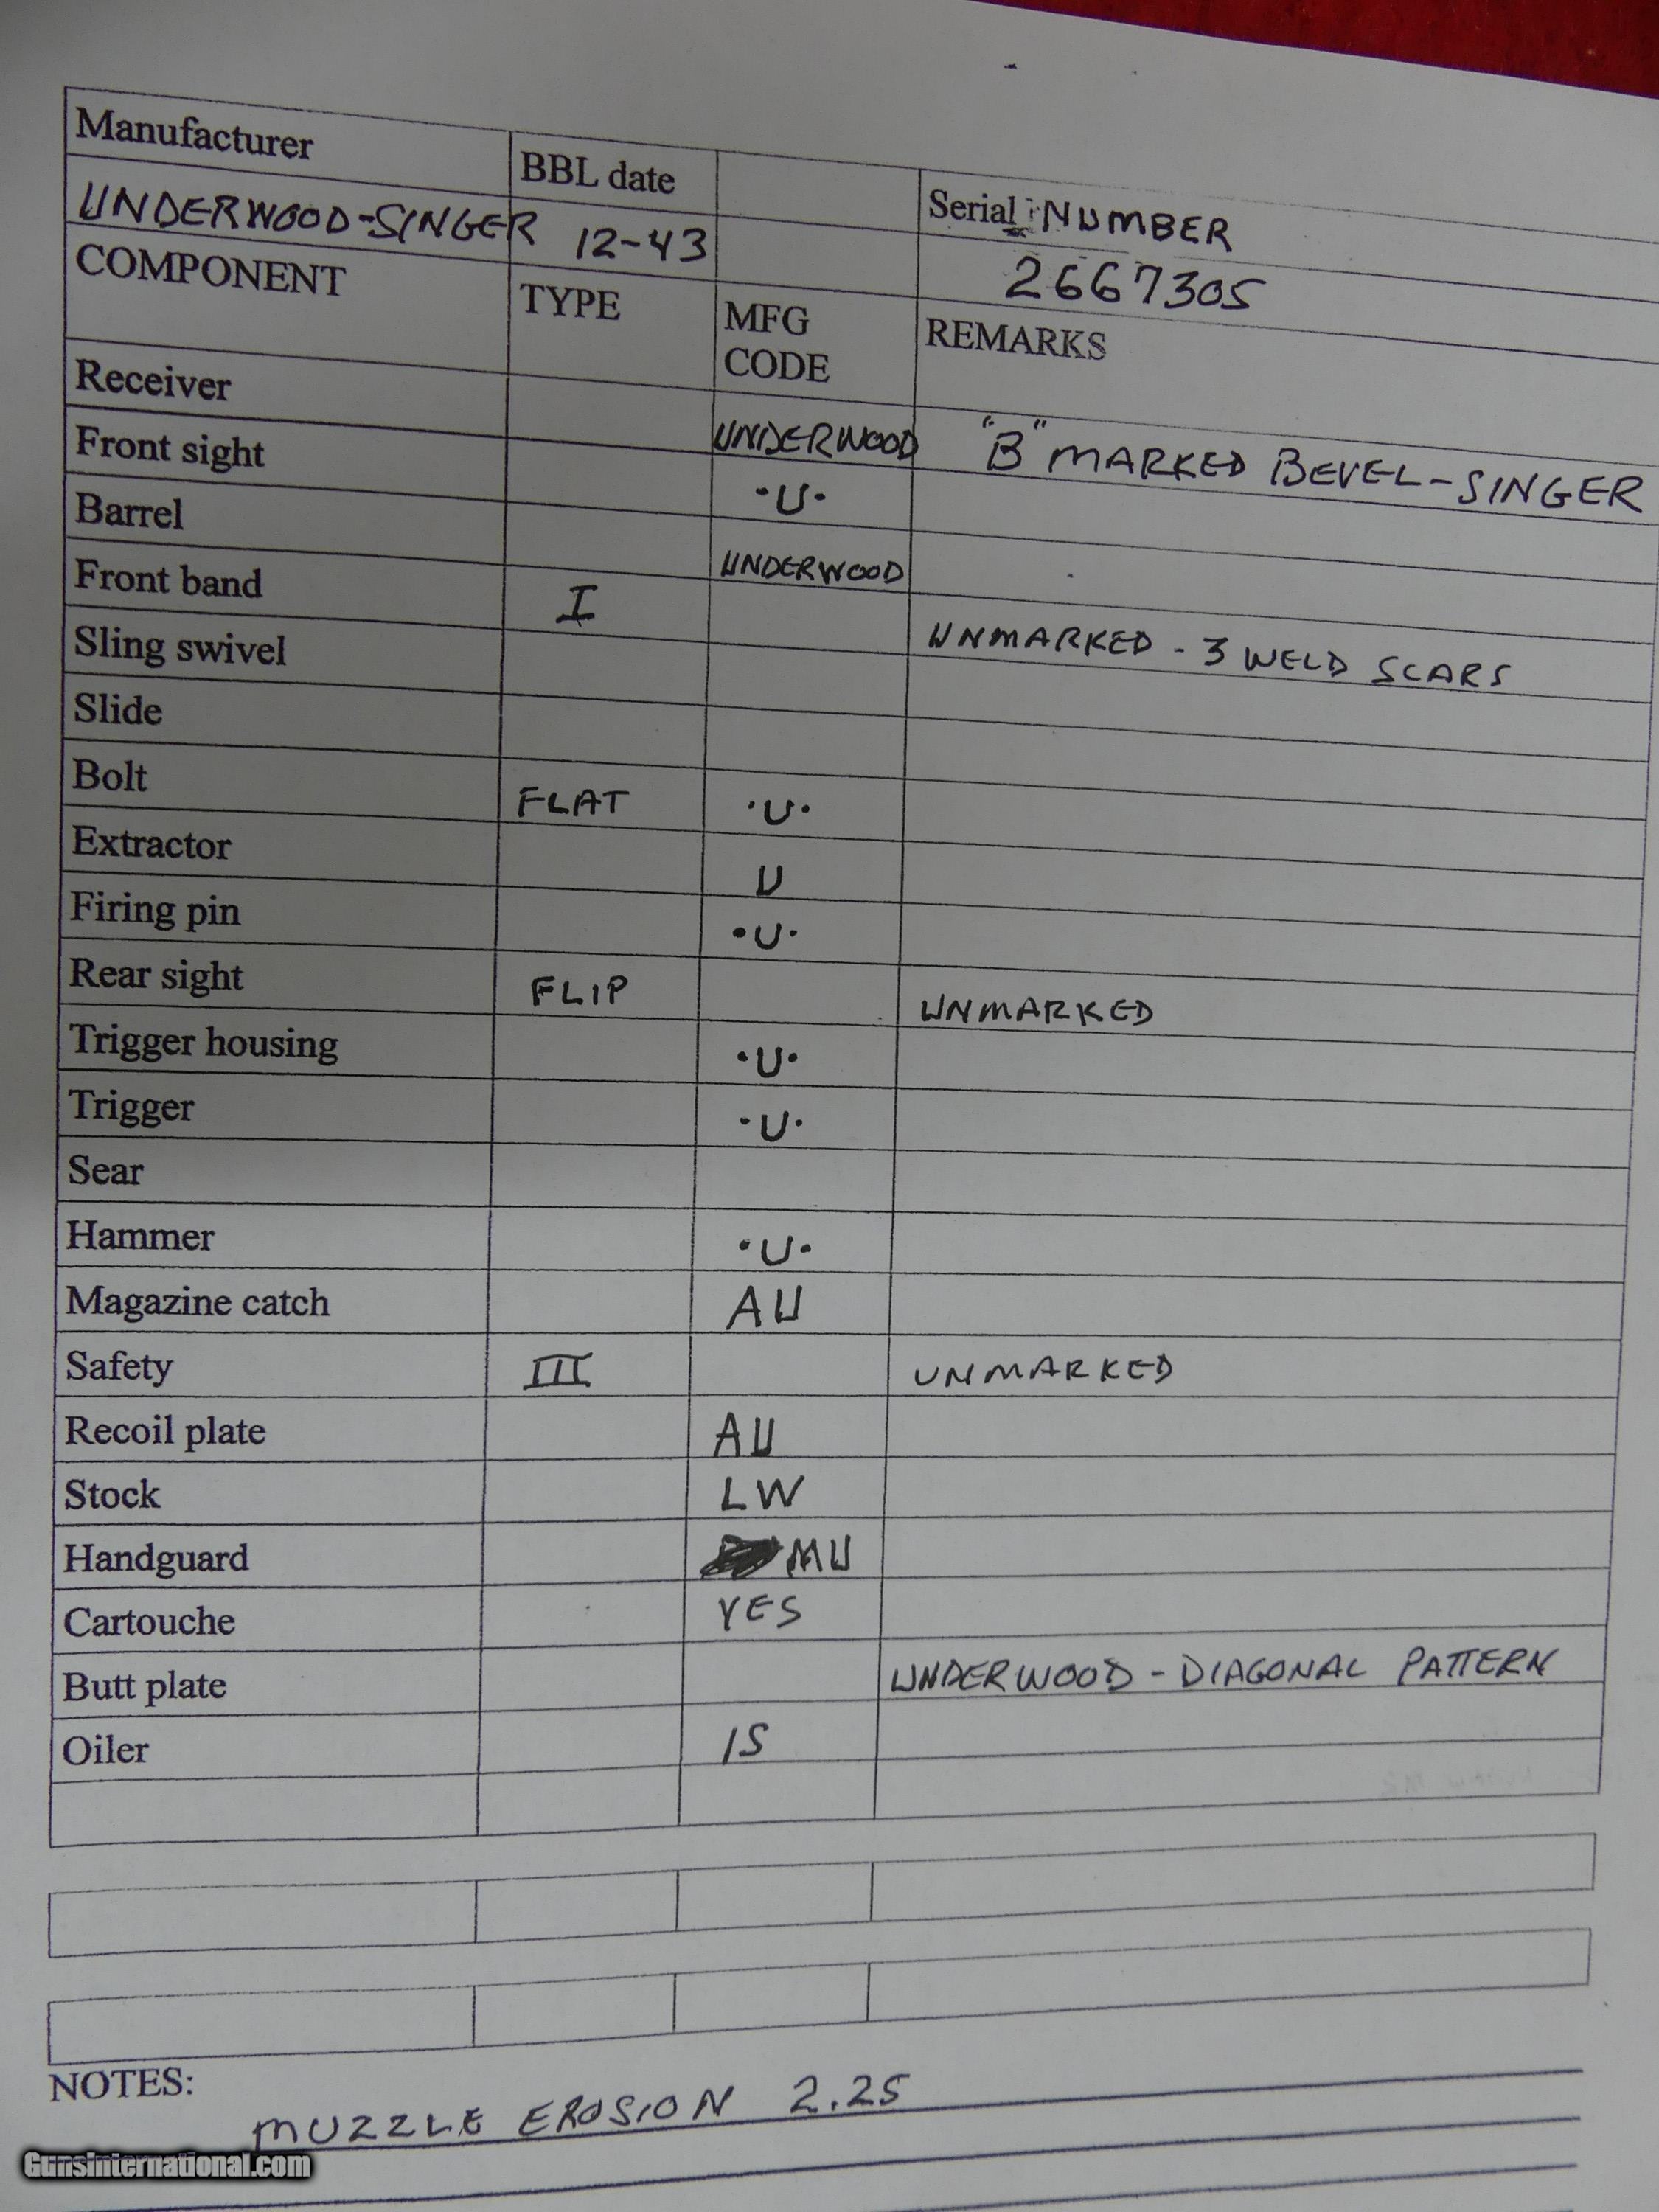 Manufacturer BBL date Serial NUMBER
UNDERWOOD-SINGER 12-43 2667305
COMPONENT TYPE MFG CODE REMARKS
Receiver UNDERWOOD "B" MARKED BEVEL-SINGER
Front sight ·U·
Barrel UNDERWOOD
Front band I UNMARKED - 3 WELD SCARS
Sling swivel
Slide
Bolt FLAT ·U·
Extractor U
Firing pin ·U·
Rear sight FLIP UNMARKED
Trigger housing ·U·
Trigger ·U·
Sear
Hammer ·U·
Magazine catch AU
Safety III UNMARKED
Recoil plate AU
Stock LW
Handguard MU
Cartouche YES
Butt plate UNDERWOOD - DIAGONAL PATTERN
Oiler IS
NOTES:
MUZZLE EROSION 2.25
GunsInternational.com